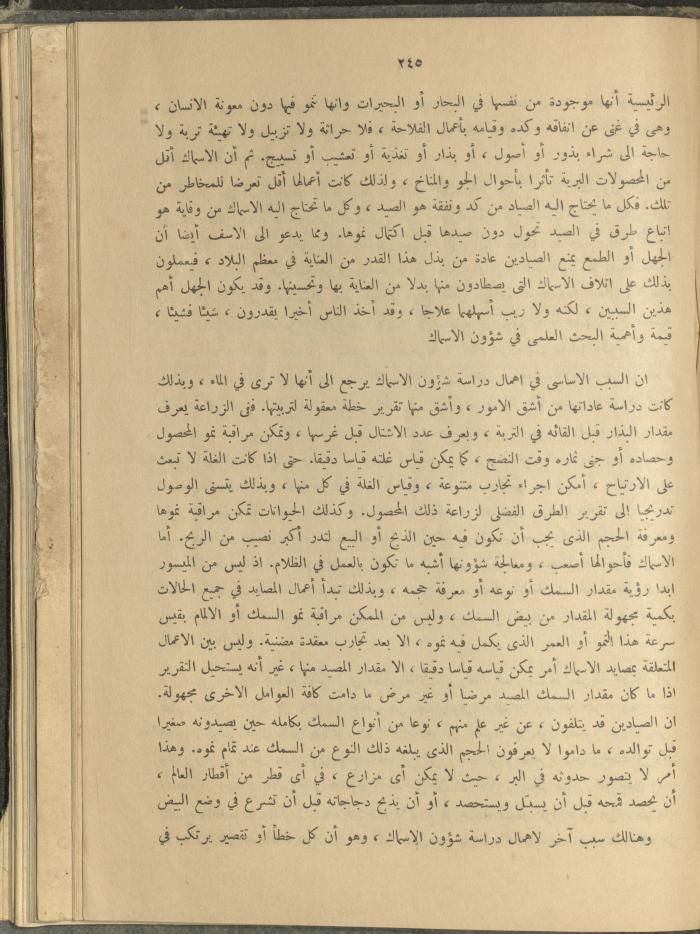 ٢٤٥
الرئيسية أنها موجودة من نفسها في البحار أو البحيرات وانها تنمو فيها دون معونة الانسان ،
وهى في غنى عن انفاقه وكده وقيامه بأعمال الفلاحة ، فلا حراثة ولا تزبيل ولا تهيئة تربة ولا
حاجة الى شراء بذور أو أصول ، أو بذار أو تغذية أو تعشيب أو تسييج. ثم أن الاسماك أقل
من المحصولات البرية تأثرا بأحوال الجو والمناخ ، ولذلك كانت أعمالها أقل تعرضا للمخاطر من
تلك. فكل ما يحتاج اليه الصياد من كد ونفقة هو الصيد ، وكل ما تحتاج اليه الاسماك من وقاية هو
اتباع طرق في الصيد تحول دون صيدها قبل اكتمال نموها. ومما يدعو الى الاسف أيضا أن
الجهل أو الطمع يمنع الصيادين عادة من بذل هذا القدر من العناية في معظم البلاد ، فيعملون
بذلك على اتلاف الاسماك التى يصطادون منها بدلا من العناية بها وتحسينها. وقد يكون الجهل أهم
هذين السببين ، لكنه ولا ريب أسهلهما علاجا ، وقد أخذ الناس أخيرا يقدرون ، شيئا فشيئا ،
قيمة وأهمية البحث العلمى في شؤون الاسماك
ان السبب الاساسى في اهمال دراسة شؤون الاسماك يرجع الى أنها لا ترى في الماء ، وبذلك
كانت دراسة عاداتها من أشق الامور ، وأشق منها تقرير خطة معقولة لتربيتها. ففى الزراعة يعرف
مقدار البذار قبل القائه في التربة ، ويعرف عدد الاشتال قبل غرسها ، وتمكن مراقبة نمو المحصول
وحصاده أو جنى ثماره وقت النضج ، كما يمكن قياس غلته قياسا دقيقا. حتى اذا كانت الغلة لا تبعث
على الارتياح ، أمكن اجراء تجارب متنوعة ، وقياس الغلة في كل منها ، وبذلك يتسنى الوصول
تدريجيا الى تقرير الطرق الفضلى لزراعة ذلك المحصول. وكذلك الحيوانات تمكن مراقبة نموها
ومعرفة الحجم الذى يجب أن تكون فيه حين الذبح أو البيع لتدر أكبر نصيب من الربح. أما
الاسماك فأحوالها أصعب ، ومعالجة شؤونها أشبه ما تكون بالعمل في الظلام. اذ ليس من الميسور
ابدا رؤية مقدار السمك أو نوعه أو معرفة حجمه ، وبذلك تبدأ أعمال المصايد في جميع الحالات
بكمية مجهولة المقدار من بيض السمك ، وليس من الممكن مراقبة نمو السمك أو الالمام بقيس
سرعة هذا النمو أو العمر الذى يكمل فيه نموه ، الا بعد تجارب معقدة مضنية. وليس بين الاعمال
المتعلقة بمصايد الاسماك أمر يمكن قياسه قياسا دقيقا ، الا مقدار المصيد منها ، غير أنه يستحيل التقرير
اذا ما كان مقدار السمك المصيد مرضيا أو غير مرض ما دامت كافة العوامل الاخرى مجهولة.
ان الصيادين قد يتلفون ، عن غير علم منهم ، نوعا من أنواع السمك بكامله حين يصيدونه صغيرا
قبل توالده ، ما داموا لا يعرفون الحجم الذى يبلغه ذلك النوع من السمك عند تمام نموه. وهذا
أمر لا يتصور حدوثه في البر ، حيث لا يمكن أى مزارع ، في أى قطر من أقطار العالم ،
أن يحصد قمحه قبل أن يسبل ويستحصد ، أو أن يذبح دجاجاته قبل أن تشرع في وضع البيض
وهنالك سبب آخر لاهمال دراسة شؤون الاسماك ، وهو أن كل خطأ أو تقصير يرتكب في